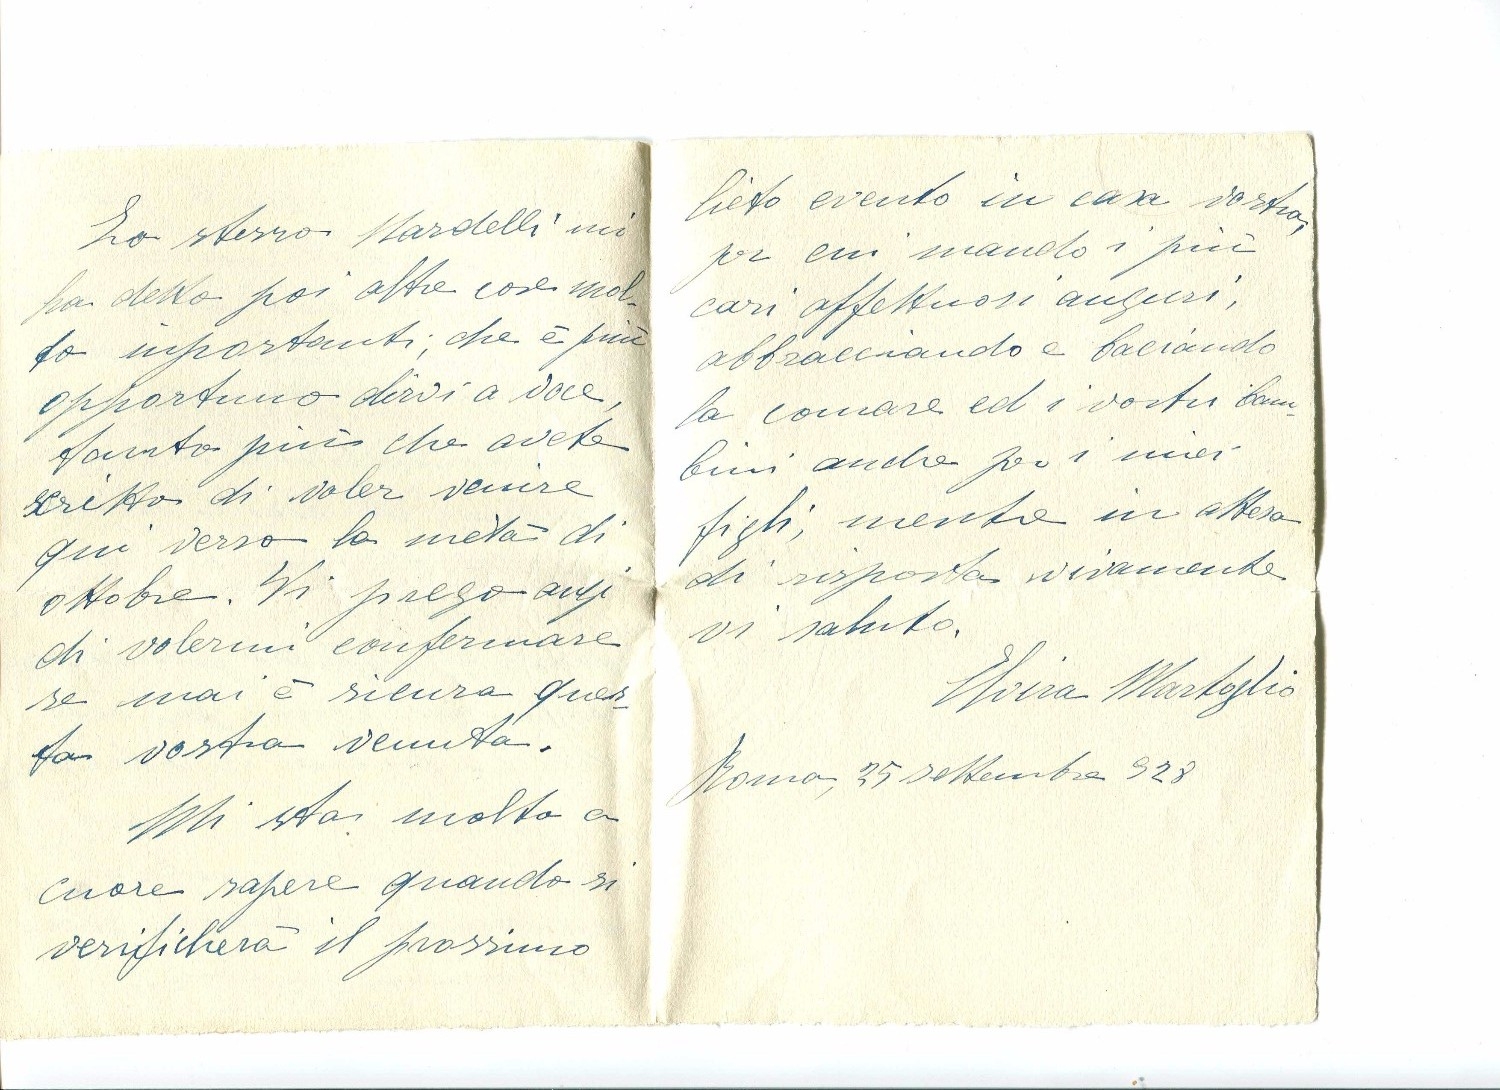 Lo stesso Nardelli mi
ha detto poi altre cose mol-
to importanti, che è più
opportuno dirvi a voce,
tanto più che avete
scritto di voler venire
qui verso la metà di
ottobre. Vi prego anzi
di volermi confermare
se mai è sicura ques-
ta vostra venuta.
Mi sta molto a
cuore sapere quando si
verificherà il prossimo
lieto evento in casa vostra,
per cui mando i più
cari affettuosi auguri,
abbracciando e baciando
la comare ed i vostri bam-
bini anche per i miei
figli, mentre in attesa
di risposta vivamente
vi saluto.
Elvira Martoglio
Roma, 25 settembre 928